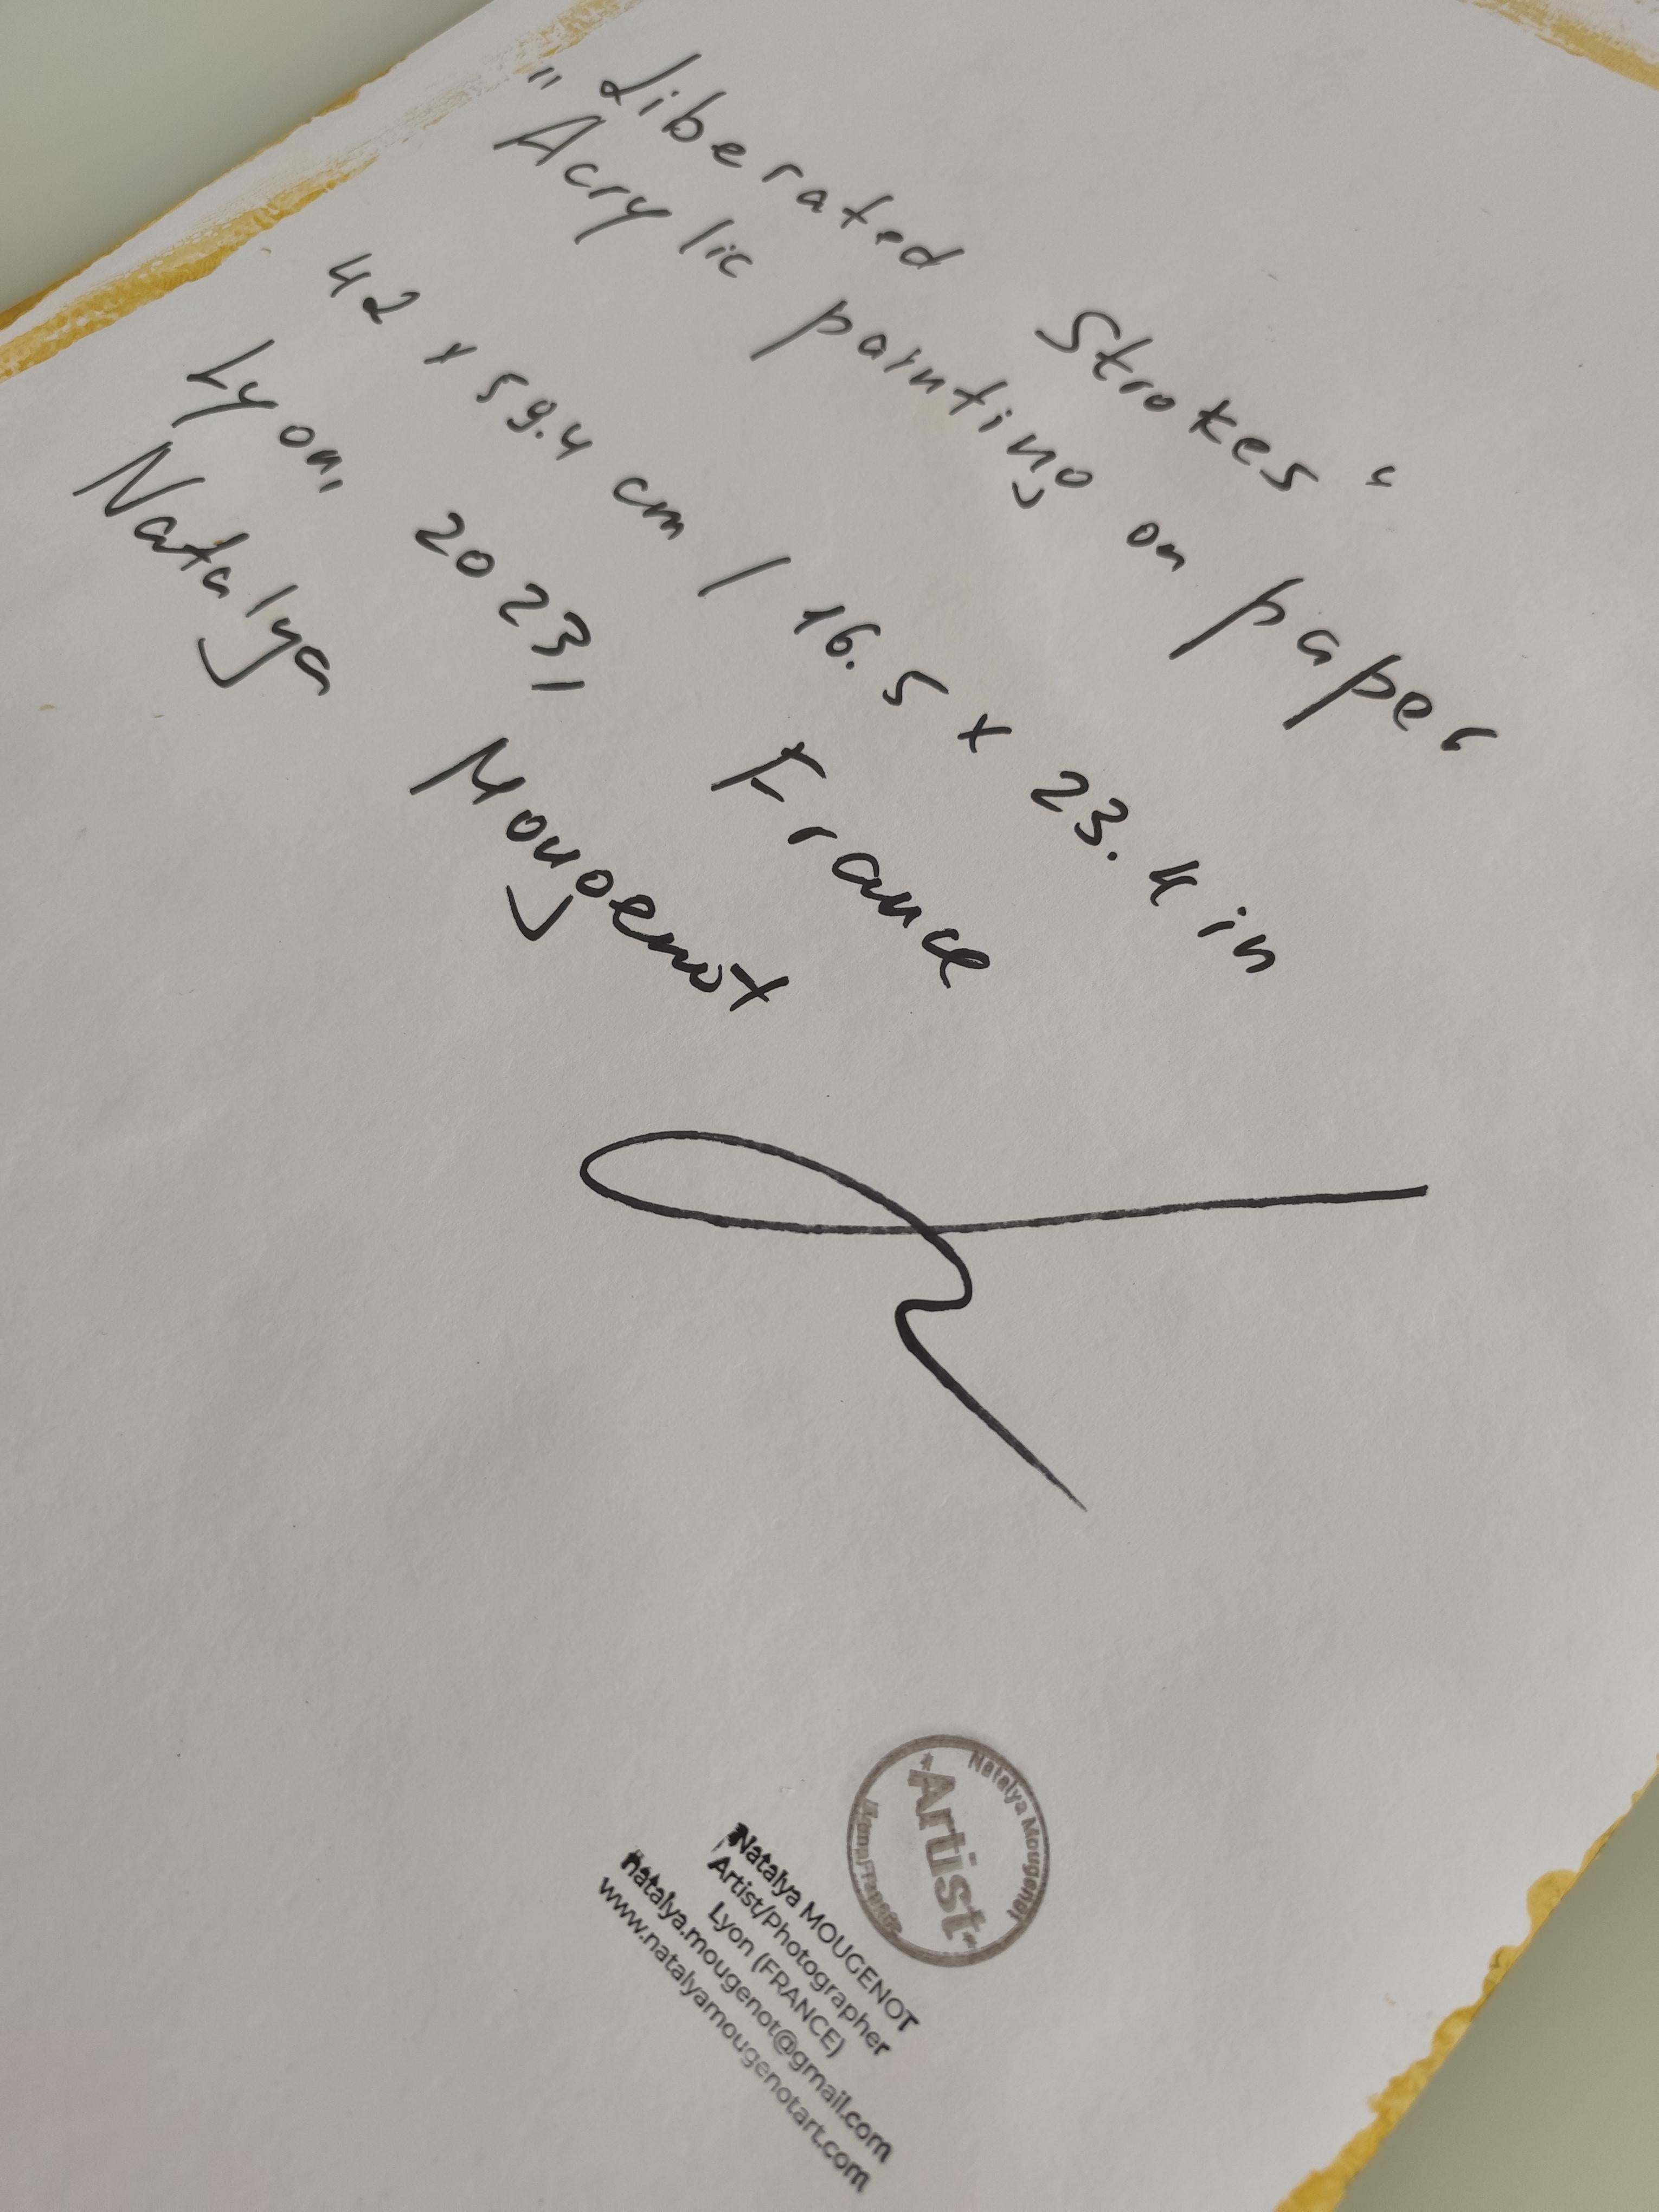 „Liberated Strokes“
Acrylic painting on paper
42 x 59.4 cm / 16.5 x 23.4 in
Lyon, 2023, France
Natalya Mougenot
Natalya Mougenot
*Artist*
Natalya MOUGENOT
Artist/Photographer
Lyon (FRANCE)
natalya.mougenot@gmail.com
www.natalyamougenotart.com